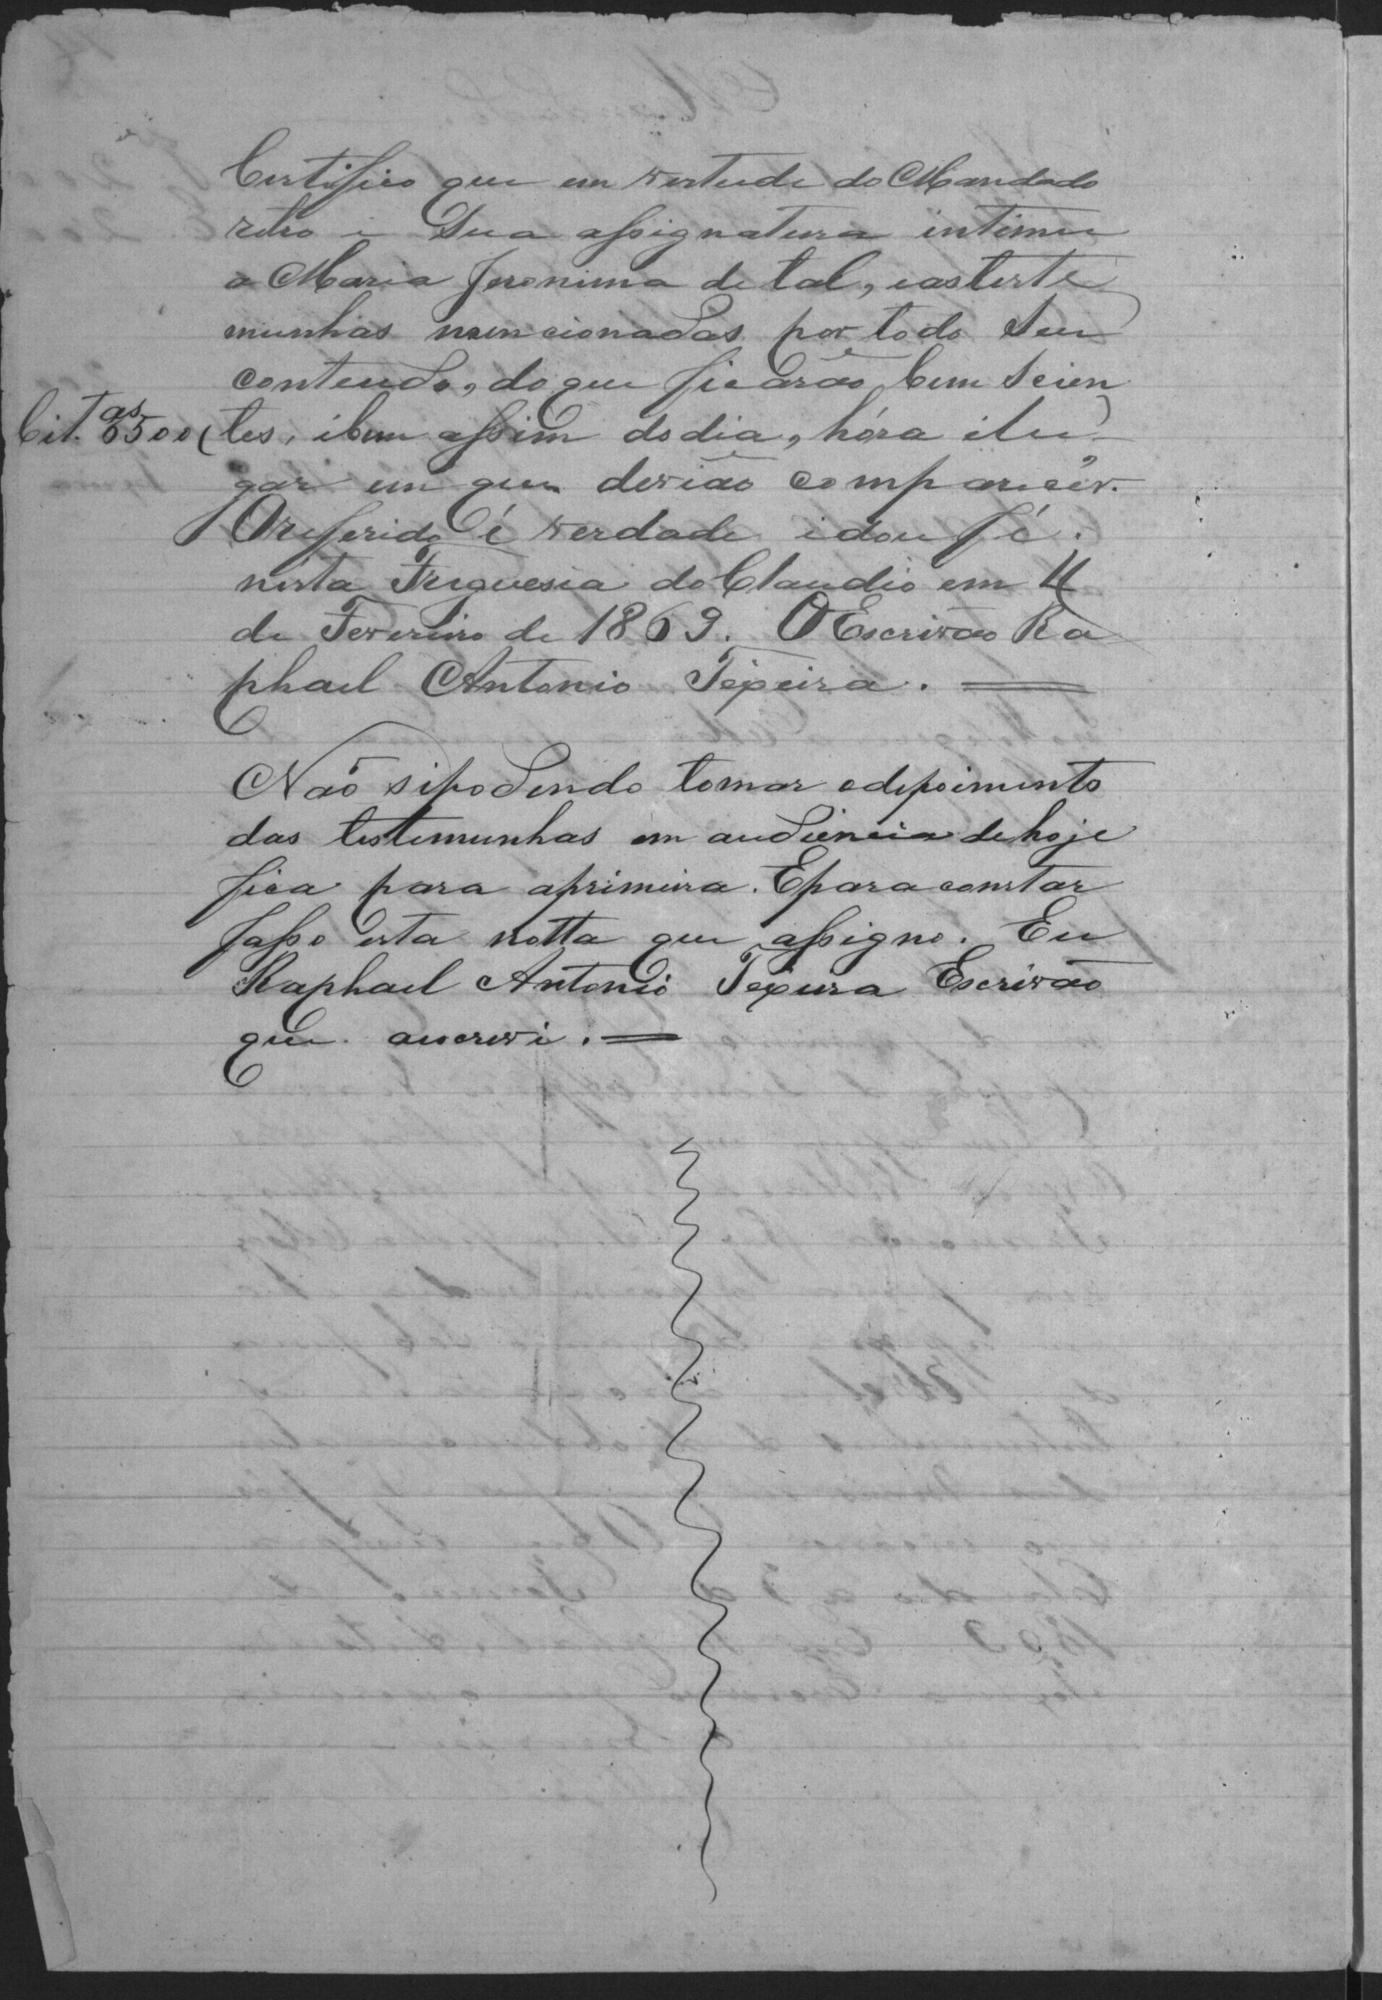 Certifico que em vertude do Mandado
retro e Sua assignatura intimei
a Maria Jeronima de tal, eas teste
munhas mencionadas por todo Seu
contendo, do que ficarão bem Scien
Cit.as 6500 (tes, ibem assim do dia, hóra e lu
gar em que devião comparecêr.
Oreferido é verdade idou fé.
nesta Freguesia do Claudio em 4
de Fevereiro de 1869. O Escrivão Ra
phael Antonio Texeira.
Não sipodendo tomar odepoimento
das testemunhas em audiencia de hoje
fica para aprimeira. Epara constar
fasso esta notta que assigno. Eu
Raphael Antonio Texeira Escrivão
que escrevi.